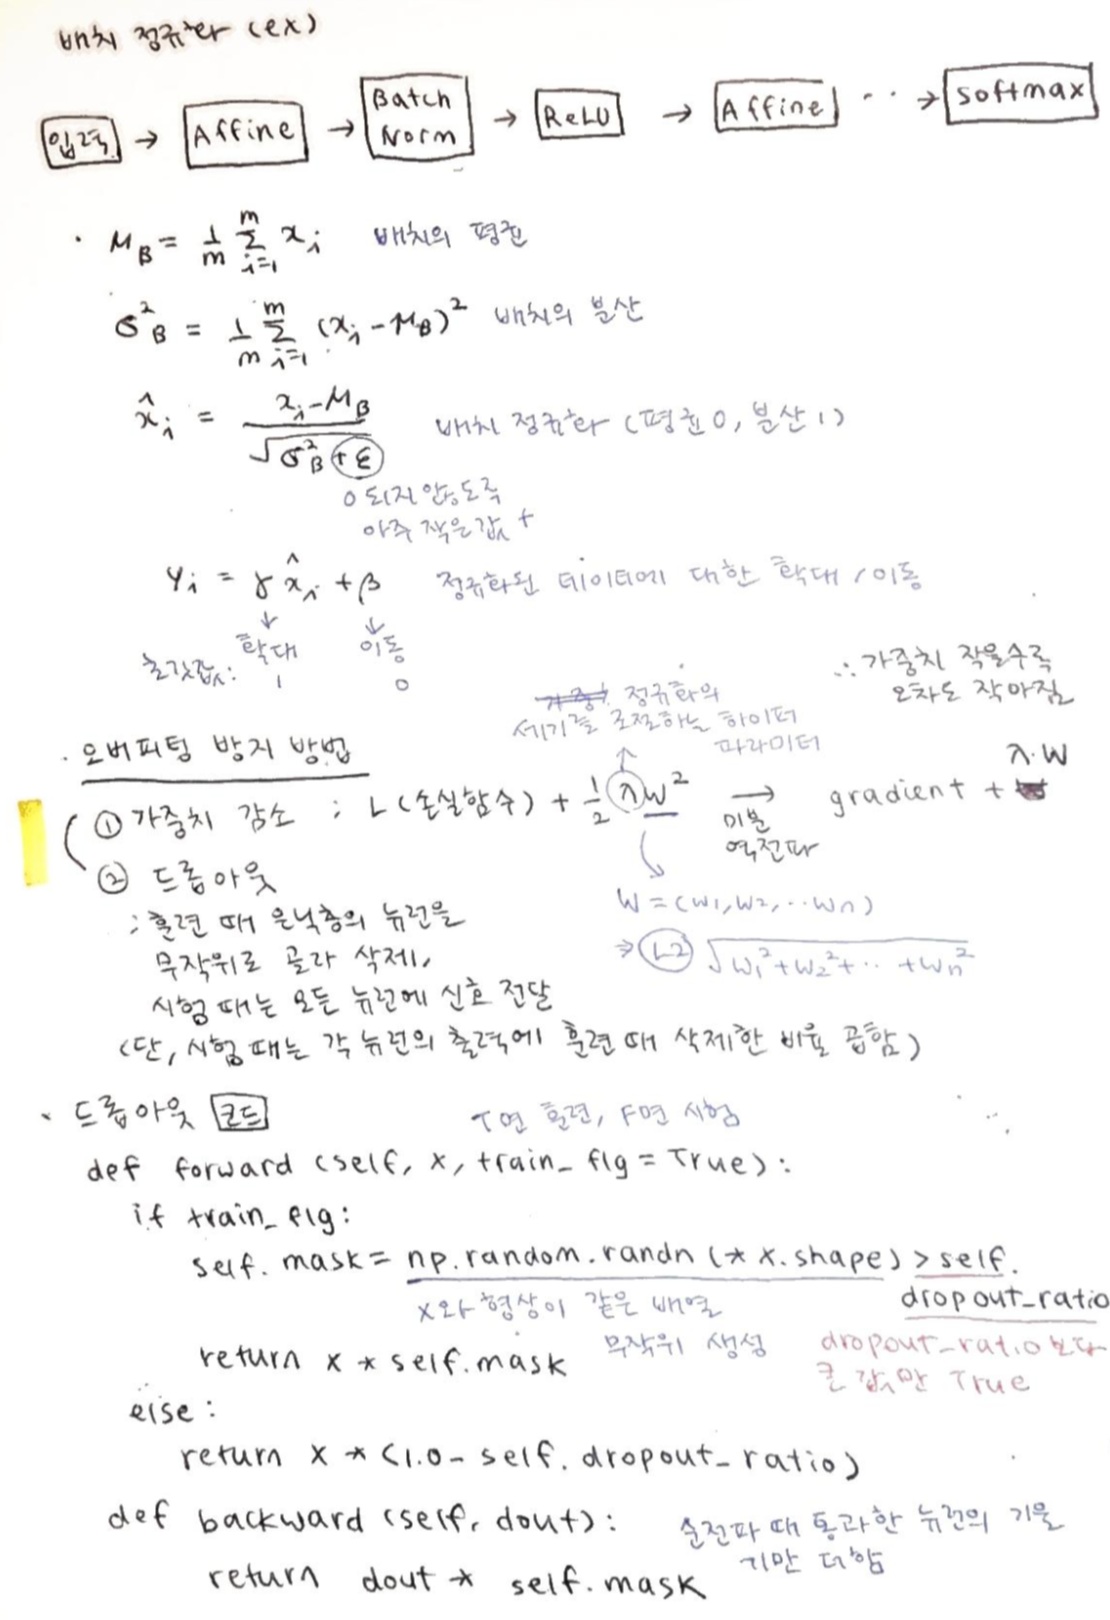 배치 정규화 (ex)
입력 → Affine → Batch Norm → ReLU → Affine ·· → softmax
· μB = 1/m Σ(i=1, m) xi 배치의 평균
σ²B = 1/m Σ(i=1, m) (xi - μB)² 배치의 분산
x̂i = (xi - μB) / √(σ²B + ε) 배치 정규화 (평균 0, 분산 1)
0 되지 않도록
아주 작은 값 +
yi = γ x̂i + β 정규화된 데이터에 대한 확대 / 이동
↓ ↓
확대 이동
초깃값: 1 0
∴ 가중치 작을수록
오차도 작아짐
정규화의
세기를 조절하는 하이퍼
파라미터
· 오버피팅 방지 방법
① 가중치 감소 ; L (손실함수) + 1/2 λW² → gradient + λ·W
미분
역전파
W = (w1, w2, ·· wn)
⇒ L2 √w1² + w2² + ·· + wn²
② 드롭아웃
; 훈련 때 은닉층의 뉴런을
무작위로 골라 삭제,
시험 때는 모든 뉴런에 신호 전달
(단, 시험 때는 각 뉴런의 출력에 훈련 때 삭제한 비율 곱함)
· 드롭아웃 코드
T면 훈련, F면 시험
def forward (self, x, train_flg = True):
if train_flg:
self. mask = np.random.randn (* x.shape) > self.
dropout_ratio
x와 형상이 같은 배열
무작위 생성
dropout_ratio보다
큰 값만 True
return x * self.mask
else:
return x * (1.0 - self. dropout_ratio)
def backward (self, dout):
순전파 때 통과한 뉴런의 기울
기만 더함
return dout * self.mask